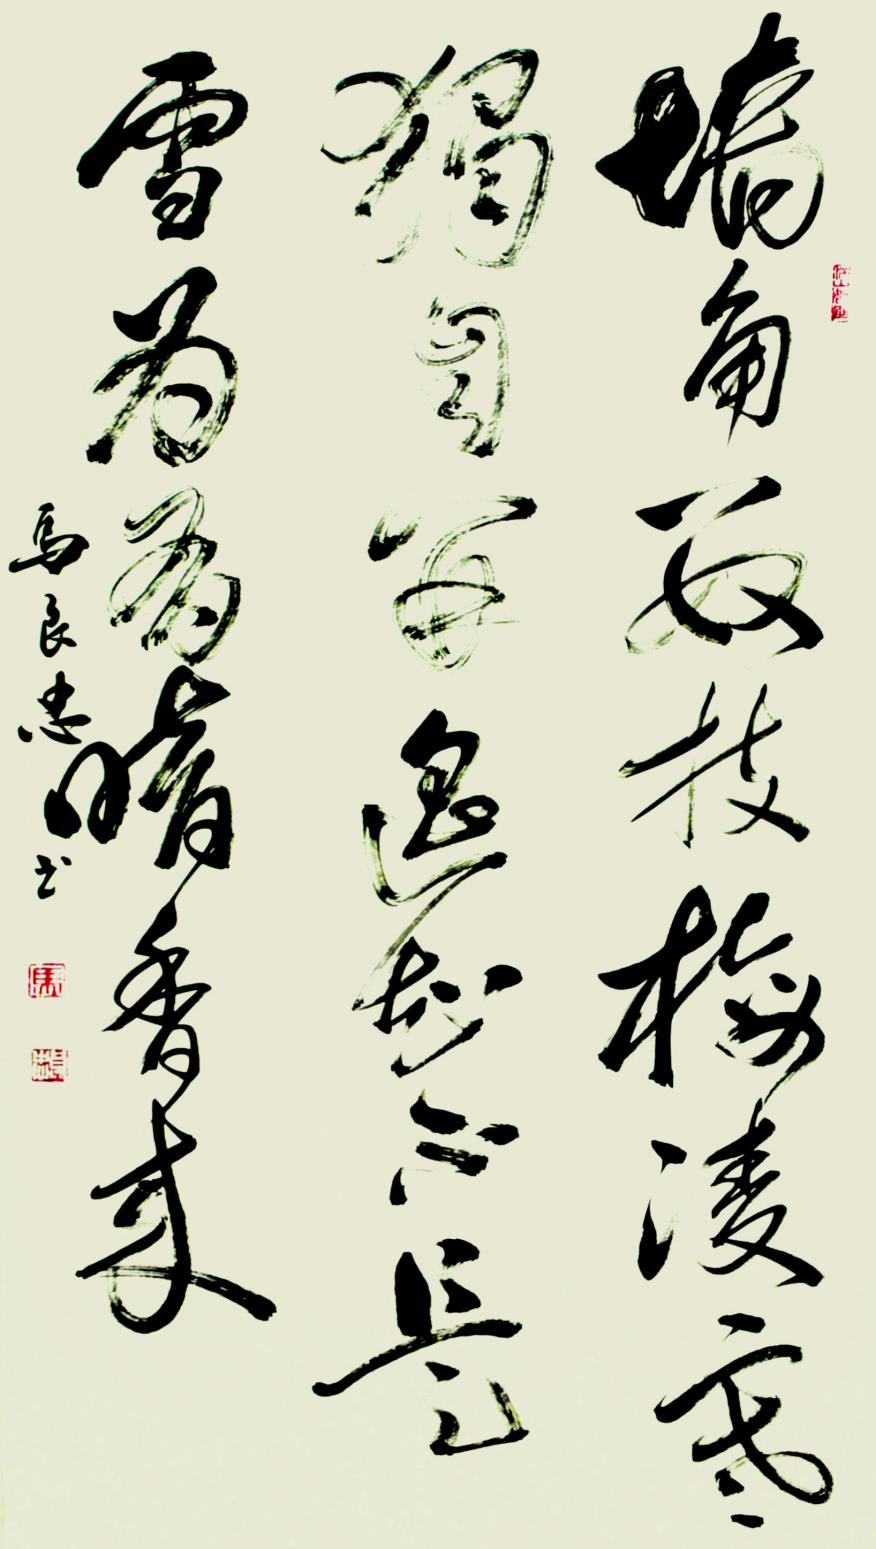 墙角数枝梅凌寒
独自开遥知不是
雪为有暗香来
马良忠书